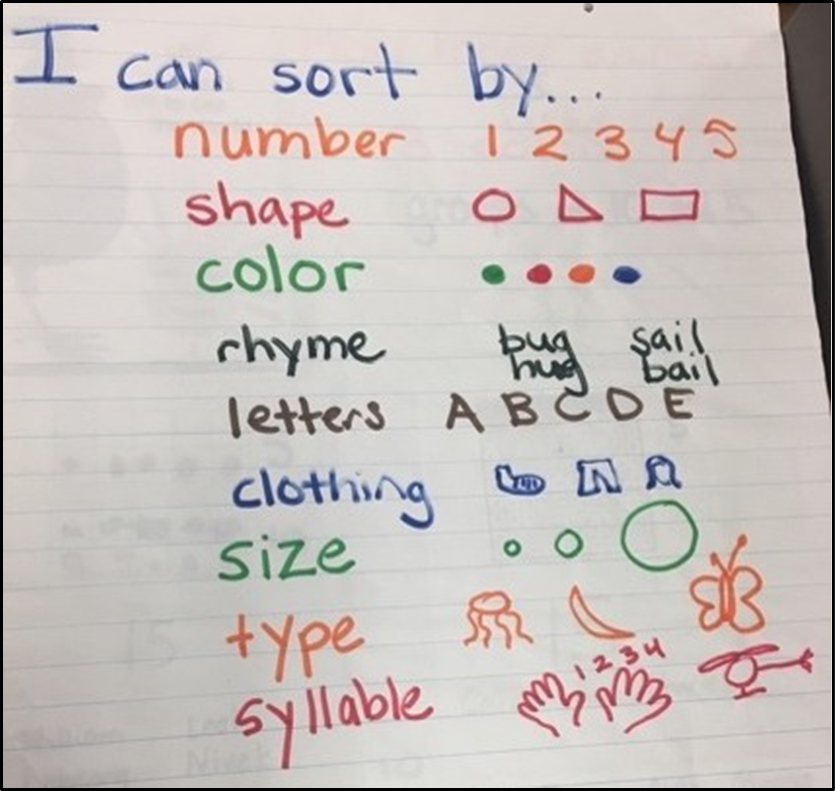 I can sort by...
number 1 2 3 4 5
shape
color
rhyme bug sail
hug bail
letters A B C D E
clothing
size
type
1 2 3 4
syllable